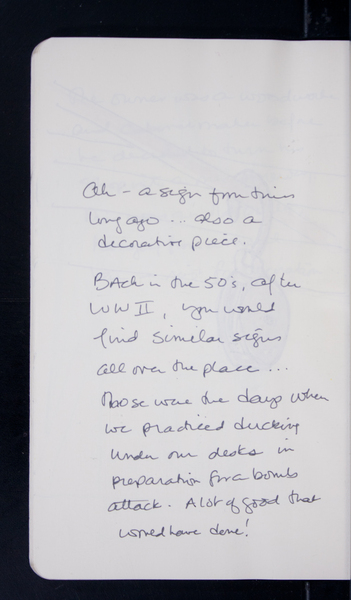 Ah – a sign from times
long ago ... also a
decorative piece.
BAck in the 50's, after
WW II, you would
find similar signs
all over the place ...
Those were the days when
we practiced ducking
under our desks in
preparation for a bomb
attack. A lot of good that
would have done!